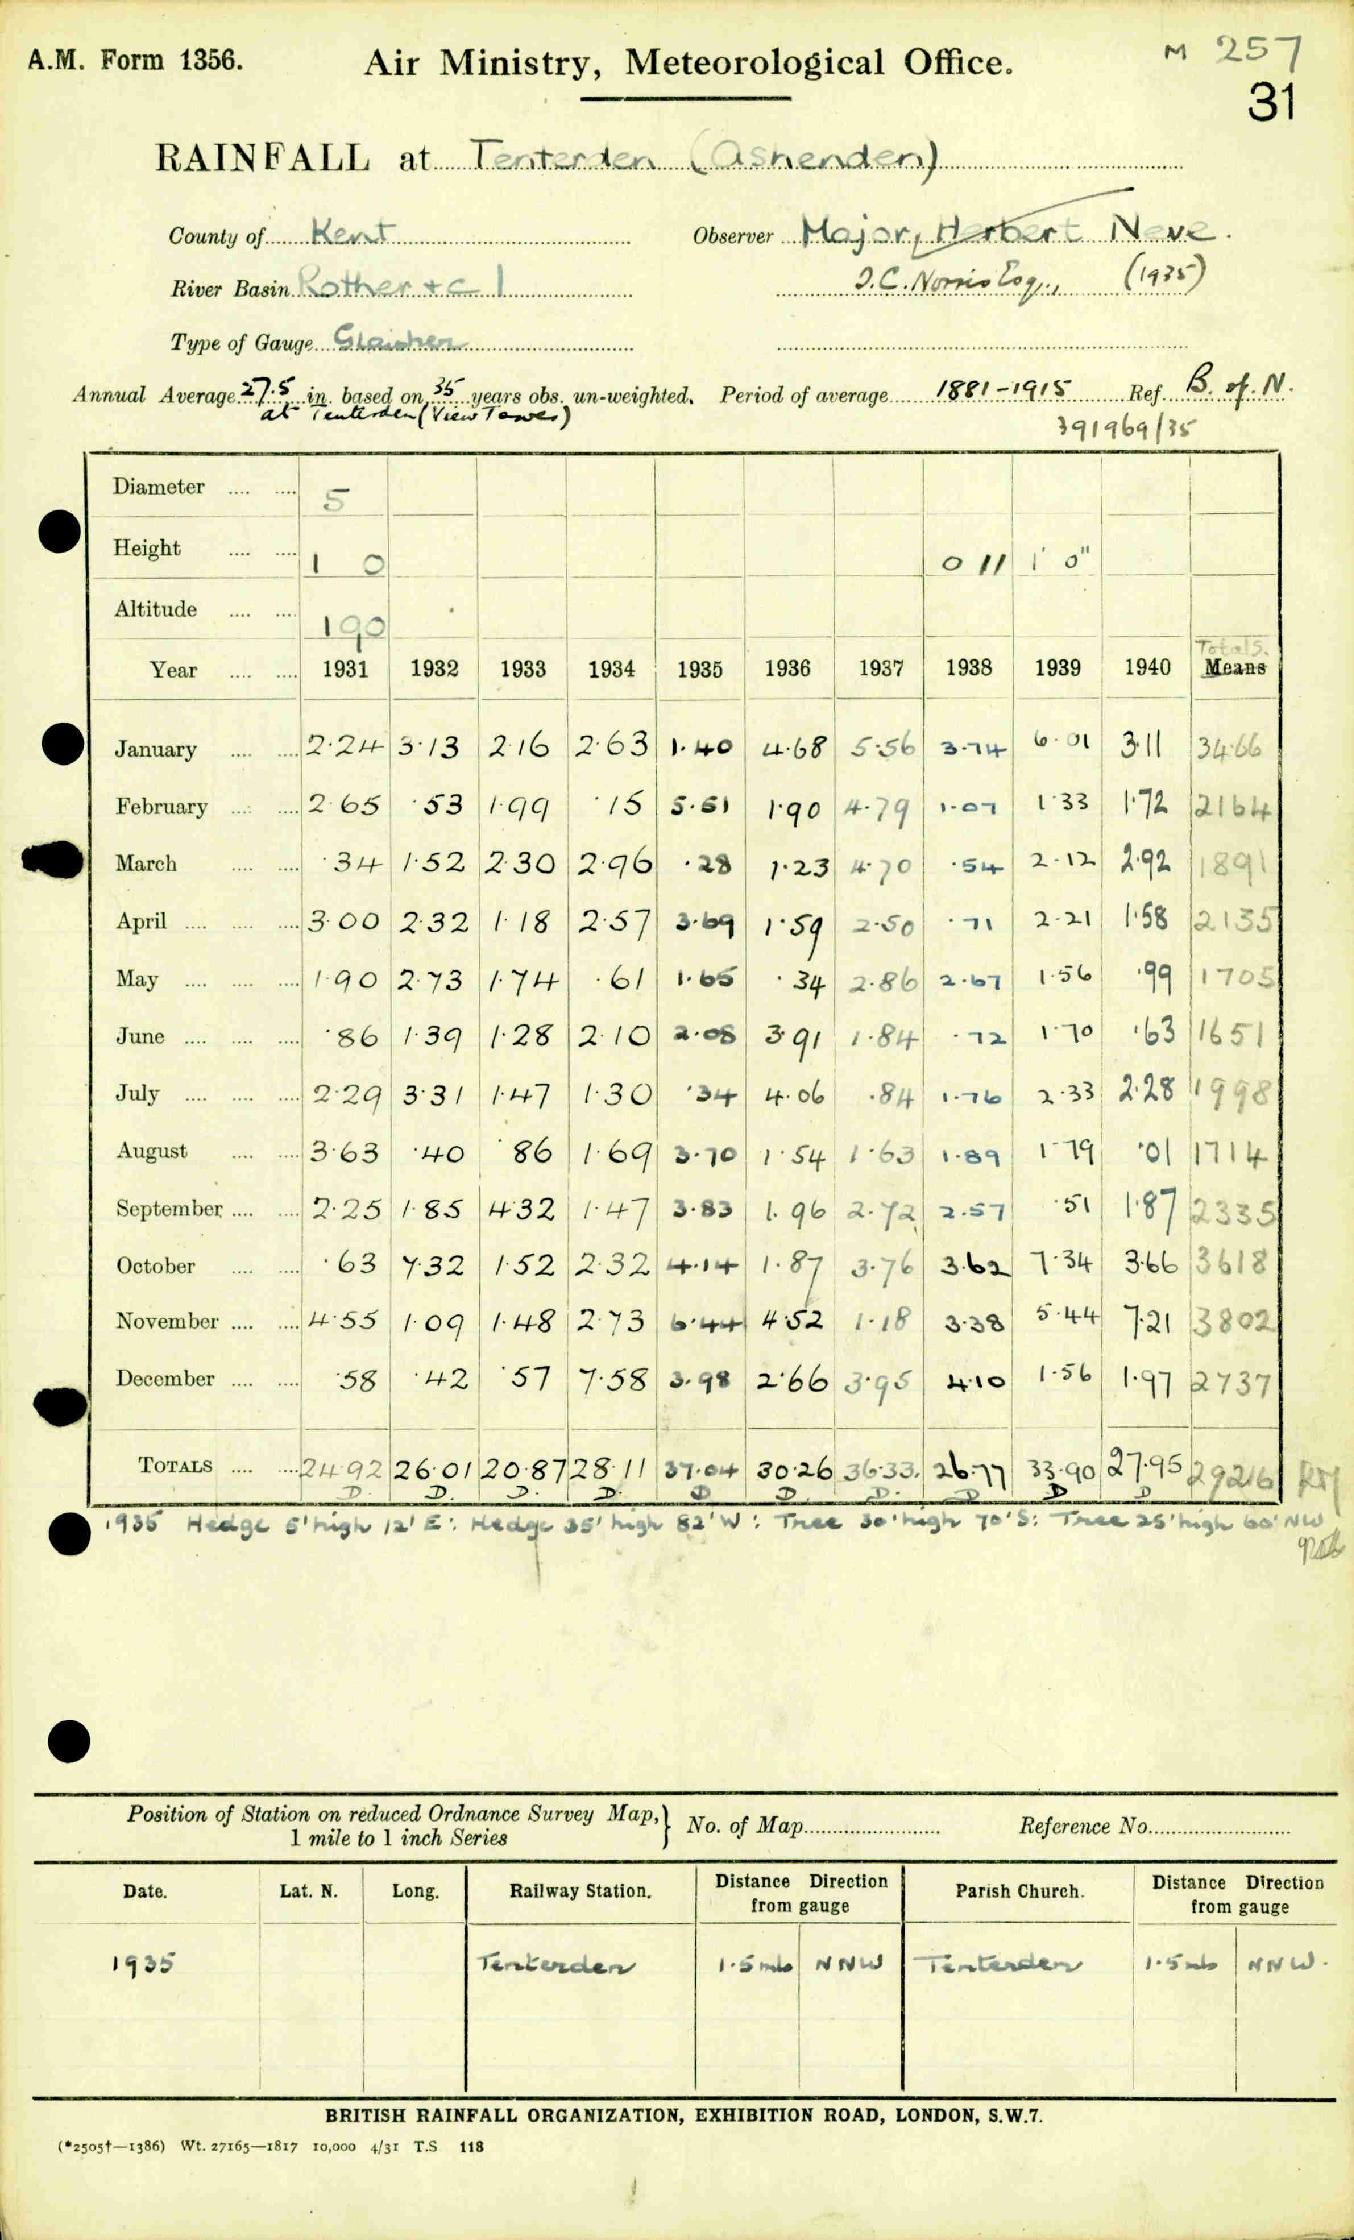 A.M. Form 1356. Air Ministry, Meteorological Office. M 257
31
RAINFALL at Tenterden (Ashenden)
County of Kent Observer Major, Herbert Neve.
River Basin Rother + c 1 I.C. Norris Esq., (1935)
Type of Gauge Glaisher
Annual Average 27.5 in. based on 35 years obs. un-weighted. Period of average 1881-1915 Ref. B. of N.
at Tenterden (View Tower) 391969/35
Diameter 5
Height 1 0 0 11 1' 0"
Altitude 190
Totals.
Year 1931 1932 1933 1934 1935 1936 1937 1938 1939 1940 Means
January 2.24 3.13 2.16 2.63 1.40 4.68 5.56 3.74 6.01 3.11 34.66
February 2.65 .53 1.99 .15 5.51 1.90 4.79 1.07 1.33 1.72 2164
March .34 1.52 2.30 2.96 .28 1.23 4.70 .54 2.12 2.92 1891
April 3.00 2.32 1.18 2.57 3.69 1.59 2.50 .71 2.21 1.58 2135
May 1.90 2.73 1.74 .61 1.65 .34 2.86 2.67 1.56 .99 1705
June .86 1.39 1.28 2.10 2.08 3.91 1.84 .72 1.70 .63 1651
July 2.29 3.31 1.47 1.30 .34 4.06 .84 1.76 2.33 2.28 1998
August 3.63 .40 .86 1.69 3.70 1.54 1.63 1.89 1.79 .01 1714
September 2.25 1.85 4.32 1.47 3.83 1.96 2.72 2.57 .51 1.87 2335
October .63 7.32 1.52 2.32 4.14 1.87 3.76 3.62 7.34 3.66 3618
November 4.55 1.09 1.48 2.73 6.44 4.52 1.18 3.38 5.44 7.21 3802
December .58 .42 .57 7.58 3.98 2.66 3.95 4.10 1.56 1.97 2737
TOTALS 24.92 26.01 20.87 28.11 37.04 30.26 36.33. 26.77 33.90 27.95 29216
D. D. D. D. D D. D. D D D
1935 Hedge 5' high 12' E: Hedge 35' high 82' W: Tree 30' high 70' S: Tree 25' high 60' NW
Position of Station on reduced Ordnance Survey Map,} No. of Map Reference No.
1 mile to 1 inch Series
Date. Lat. N. Long. Railway Station. Distance Direction from gauge Parish Church. Distance Direction from gauge
1935 Tenterden 1.5 mls NNW Tenterden 1.5 mls NNW.
BRITISH RAINFALL ORGANIZATION, EXHIBITION ROAD, LONDON, S.W.7.
(*2505†—1386) Wt. 27165—1817 10,000 4/31 T.S 118